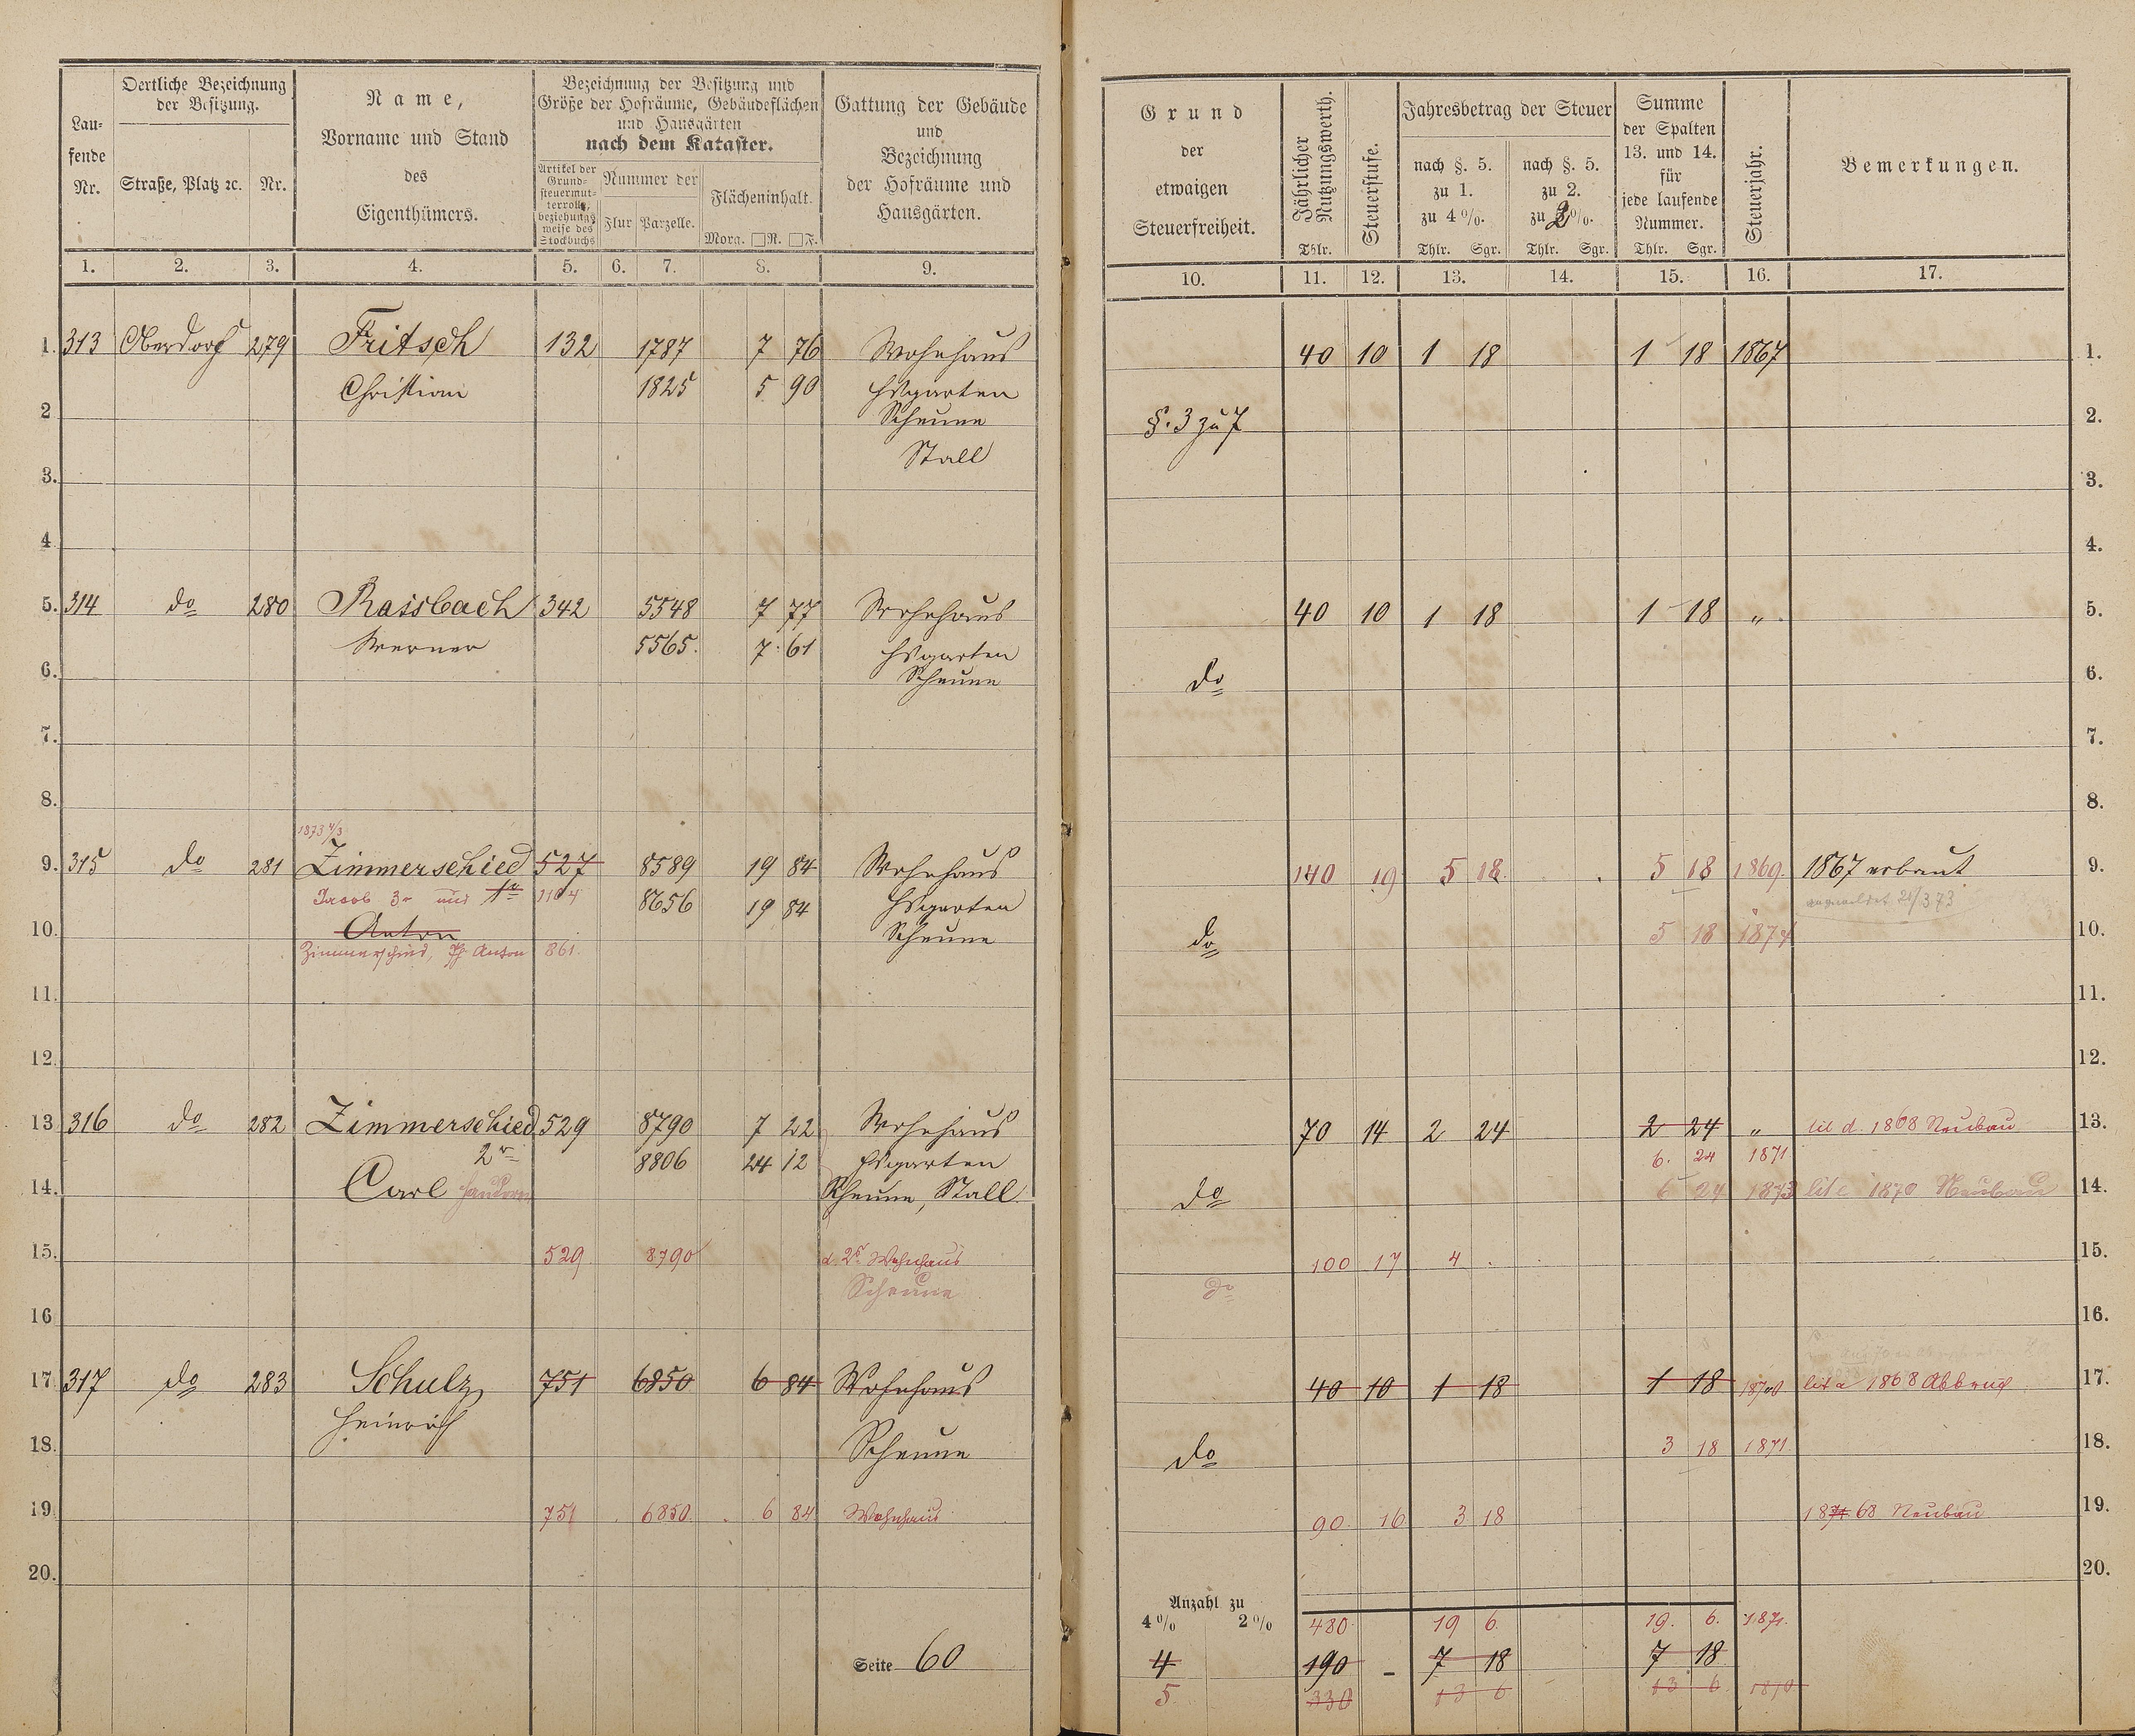 Lau-
fende
Nr.
Oertliche Bezeichnung
der Besitzung.
Straße, Platz ꝛc. Nr.
Name,
Vorname und Stand
des
Eigenthümers.
Bezeichnung der Besitzung und
Größe der Hofräume, Gebäudeflächen
und Hausgärten
nach dem Kataster.
Artikel der
Grund-
steuermut-
terrolle,
beziehungs
weise des
Stockbuchs
Nummer der
Flur Parzelle.
Flächeninhalt.
Morg. □R. □F.
Gattung der Gebäude
und
Bezeichnung
der Hofräume und
Hausgärten.
1. 2. 3. 4. 5. 6. 7. 8. 9.
1. 313 Oberdorf 279 Fritsch 132 1787 7 76 Wohnhaus
Christian 1825 5 90 Hsgarten
2 Scheune
Stall
3.
4
5. 314 do 280 Rassbach 342 5548 7 77 Wohnhaus
Werner 5565. 7. 61 Hsgarten
6. Scheune
7.
8.
1873 4/3
9. 315 do 281 Zimmerschied 527 8589 19 84 Wohnhaus
Jacob 3r und 1r 1104 8656 19 84 Hsgarten
10. Anton Scheune
Zimmerschied, Anton 861.
11.
12.
13 316 do 282 Zimmerschied 529 8790 7 22 Wohnhaus
2r 8806 24 12 Hsgarten
14. Carl Scheune, Stall
15. 529. 8790 d. 2s Wohnhaus
Scheune
16
17. 317 do 283 Schulz 751 6850 6 84 Wohnhaus
Heinrich
18. Scheune
19. 751 6850 6 84 Wohnhaus
20.
Seite 60
Grund
der
etwaigen
Steuerfreiheit.
Jährlicher
Nutzungswerth.
Thlr.
Steuerstufe.
Jahresbetrag der Steuer
nach §. 5.
zu 1.
zu 4 %.
Thlr. Sgr.
nach §. 5.
zu 2.
zu 2 %.
Thlr. Sgr.
Summe
der Spalten
13. und 14.
für
jede laufende
Nummer.
Thlr. Sgr.
Steuerjahr.
Bemerkungen.
10. 11. 12. 13. 14. 15. 16. 17.
40 10 1 18 1 18 1867 1.
§. 3 zu 7 2.
3.
4.
40 10 1 18 1 18 " 5.
do 6.
7.
8.
140 19 5 18. 5 18 1869. 1867 erbaut 9.
do 5 18 1874 10.
11.
12.
70 14 2 24 2 24 " lit d. 1868 Neubau 13.
6. 24 1871
do 6 24 1873 lit e 1870 Neubau 14.
100 17 4 . 15.
do
16.
40 10 1 18 1 18 1870 lit a 1868 Abbruch 17.
do 3 18 1871. 18.
90. 16 3 18 1871 68 Neubau 19.
20.
Anzahl zu
4 % 2 %
480. 19 6. 19. 6. 1871.
4 190 - 7 18 7 18
5 330 13 6 13 6 1870